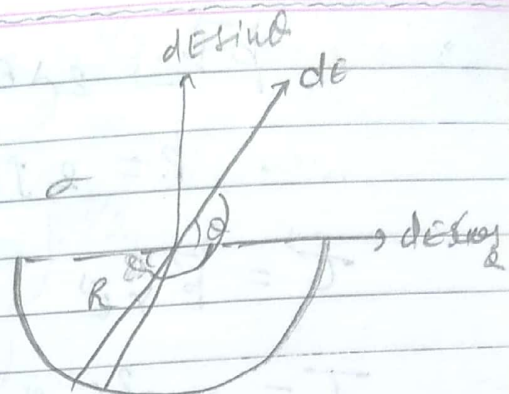 dE sinθ
dE
σ
θ
dE cosθ
R